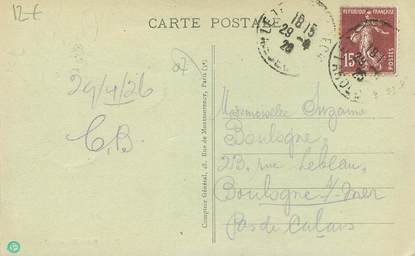 12-€
CARTE POSTALE
REPUBLIQUE FRANÇAISE
15
18 15
29 -4
26
07
29/4/26
C.B.
Mademoiselle Suzanne
Boulogne
23, rue Leblau,
Boulogne s/-Mer
Pas de Calais
Comptoir Général, 18, Rue de Montmorency, Paris (3e)